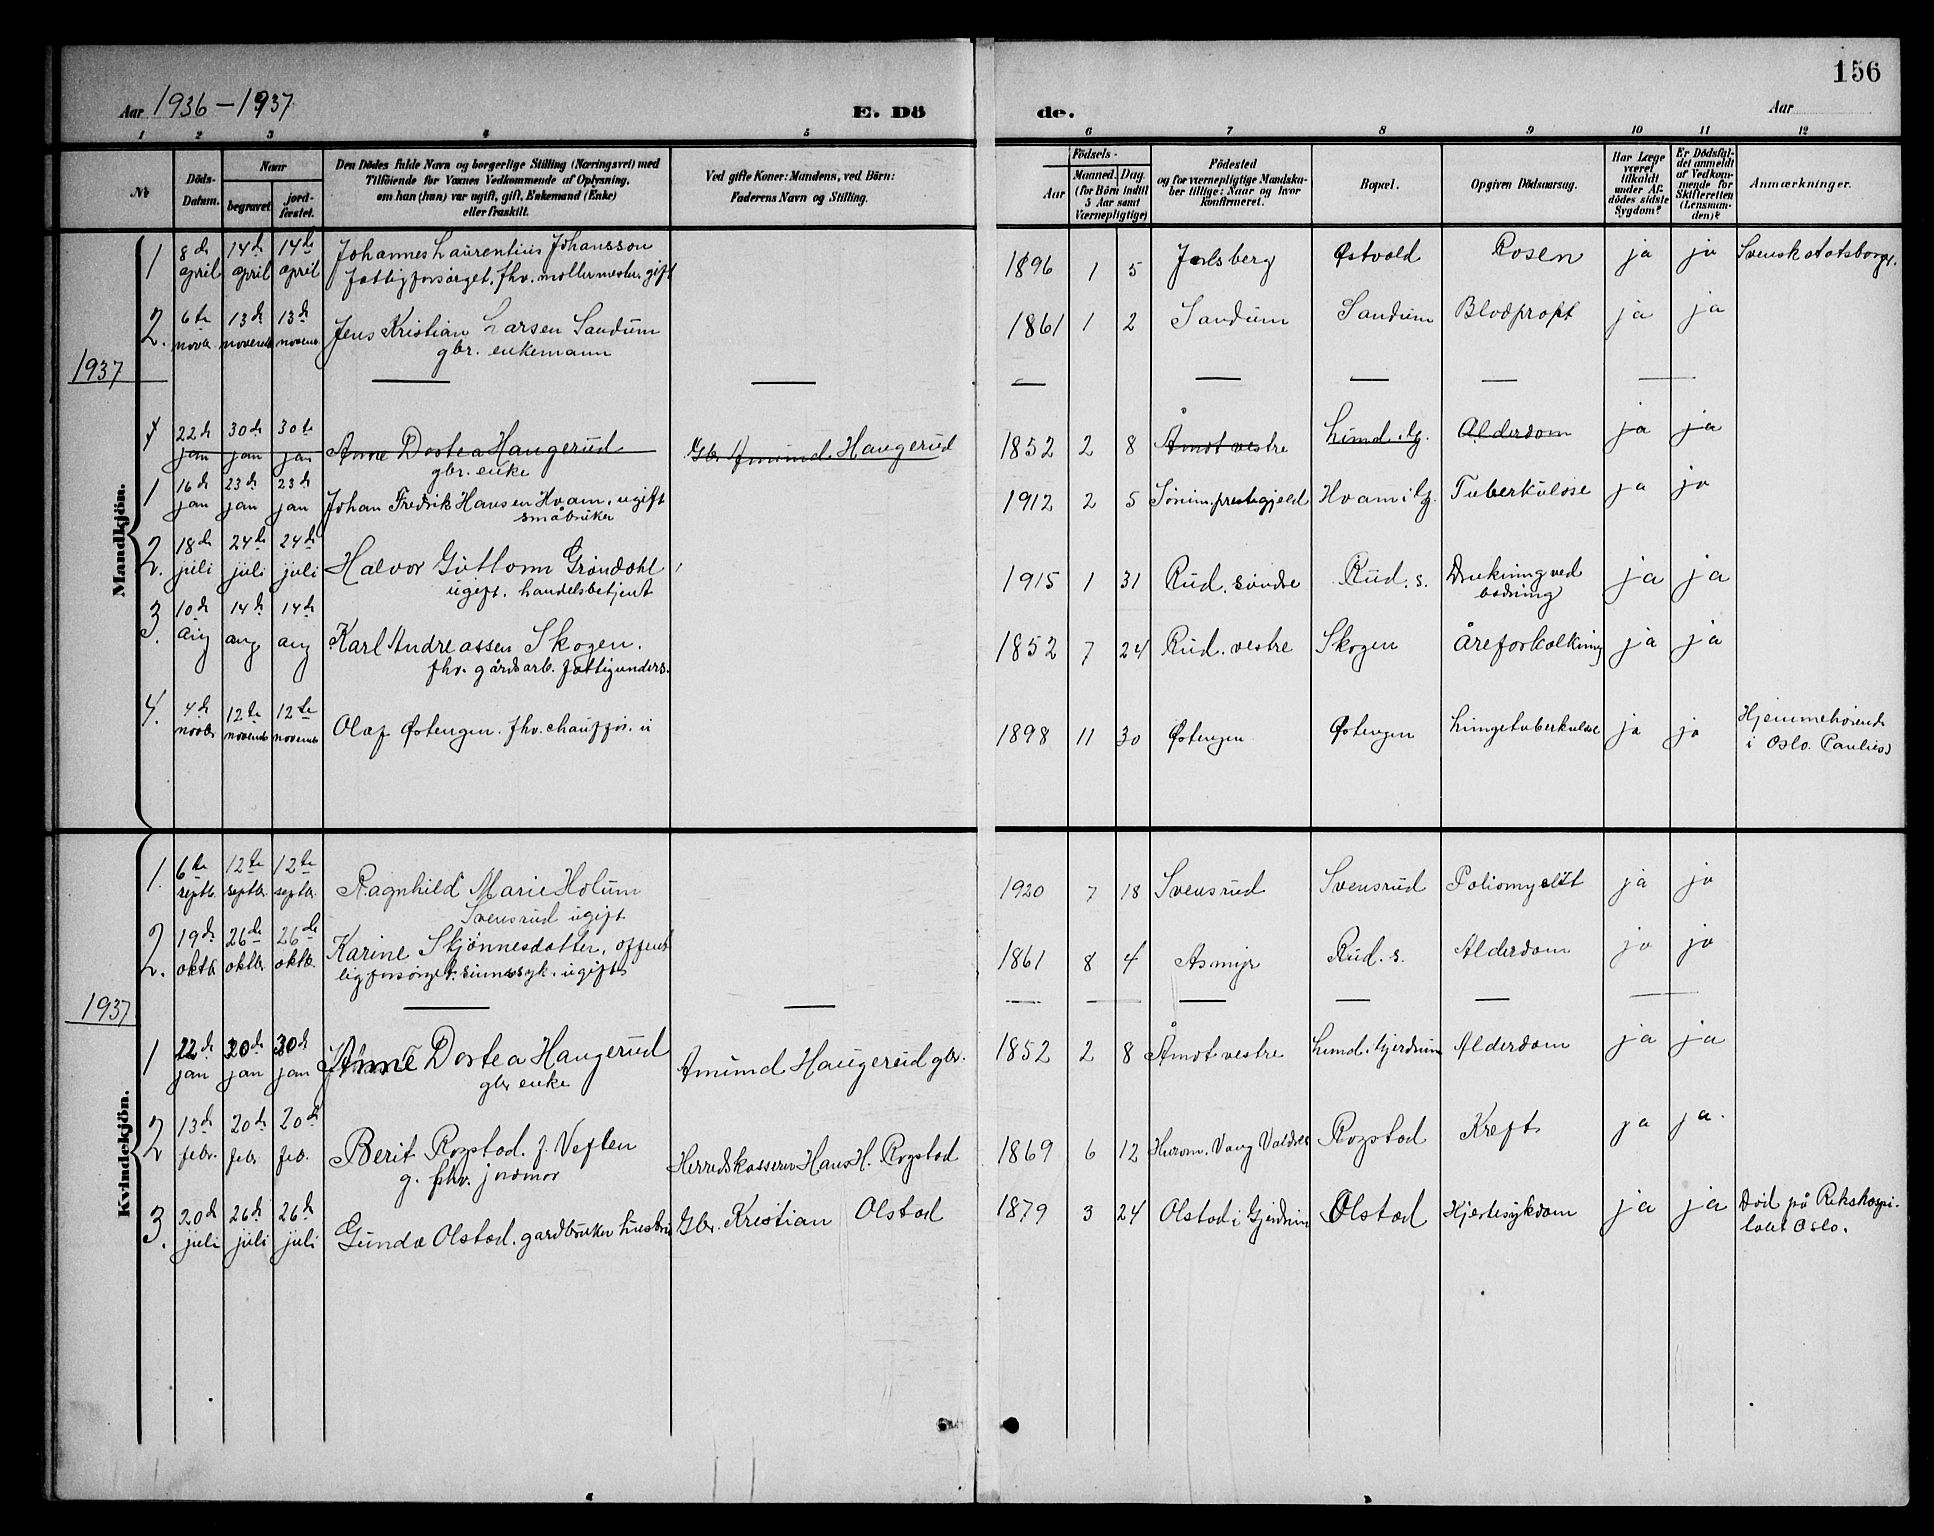 156
Aar 1936-1937
E. Dö
de.
Aar
1 2 3 4 5 6 7 8 9 10 11 12
No
Döds-
Datum.
Naar
begravet
jord-
fæstet.
Den Dödes fulde Navn og borgerlige Stilling (Næringsvei) med
Tilföiende for Voxnes Vedkommende af Oplysning,
om han (hun) var ugift, gift, Enkemand (Enke)
eller fraskilt.
Ved gifte Koner: Mandens, ved Börn:
Faderens Navn og Stilling.
Födsels-
Aar
Maaned. Dag.
(for Börn indtil
5 Aar samt
Værnepligtige)
Födested
og for værnepligtige Mandska-
ber tillige: Naar og hvor
konfirmeret.
Bopæl.
Opgiven Dödsaarsag.
Har Læge
været
tilkaldt
under Af-
dödes sidste
Sygdom?
Er Dödsfal-
det anmeldt
af Vedkom-
mende for
Skifteretten
(Lensman-
den)?
Anmærkninger.
Mandkjön.
1 8de april 14de april 14de april Johannes Laurentius Johansson 1896 1 5 Jarlsberg Østvold ja ja Svensk statsborger.
fattigforsørget, fhv. møllermester, gift
2. 6te novb. 13de novemb. 13de novemb. Jens Kristian Larsen Sandum 1861 1 2 Sandum Sandum Blodpropt ja ja
gbr. enkemann
1937
1 22de jan 30de jan 30te jan Anne Dortea Haugerud Gbr. Amund Haugerud 1852 2 8 Åmot vestre Lund i Gj. Alderdom ja ja
gbr. enke
1 16de jan 23de jan 23de jan Johan Fredrik Hansen Hvam, ugift 1912 2 5 prestegjeld Hvam i Gj. Tuberkulose ja ja
småbruker
2. 18de juli 24de juli 24de juli Halvor Guttorm Grøndahl 1915 1 31 Rud. søndre Rud. s. Drukning ved
ugift. handelsbetjent badning ja ja
3. 10de aug 14de aug 14de aug Karl Andreassen Skogen. 1852 7 24 Rud. vestre Skogen Åreforkalkning ja ja
fhv. gårdsarb. fattigunders.
4. 4de novb. 12te novemb. 12te novemb. Olaf Østengen. fhv. chauffør. u 1898 11 30 Østengen Østengen Lungetuberkulose ja ja Hjemmehørende
i Oslo. Paulus
Kvindekjön.
1. 6te septb. 12te septbr. 12te septbr. Ragnhild Marie Holum 1920 7 18 Svensrud Svensrud Poliomyelit ja ja
Svensrud ugift
2. 19de oktb. 26de oktbr. 26de oktbr. Karine Skjønnesdatter, offent 1861 8 4 Asmyr Rud. s. Alderdom ja ja
lig forsørget. sinnssyk. ugift
1937
1 22de jan 30de jan 30de jan Anne Dortea Haugerud Amund Haugerud gbr. 1852 2 8 Åmot vestre Lund i Gjerdrum Alderdom ja ja
gbr enke
2 13de febr. 20de febr 20de feb. Berit Rogstad. f. Veflen Herredskasserer Hans H. Rogstad 1869 6 12 Vang Valdres Rogstad Kreft ja ja.
g. fhv. jordmor
3. 20de juli 26de juli 26de juli Gunda Olstad. gardbruker hustru Gbr. Kristian Olstad 1879 3 24 Olstad i Gjerdrum Olstad Hjertesykdom ja ja Død på Rikshospi-
talet Oslo.